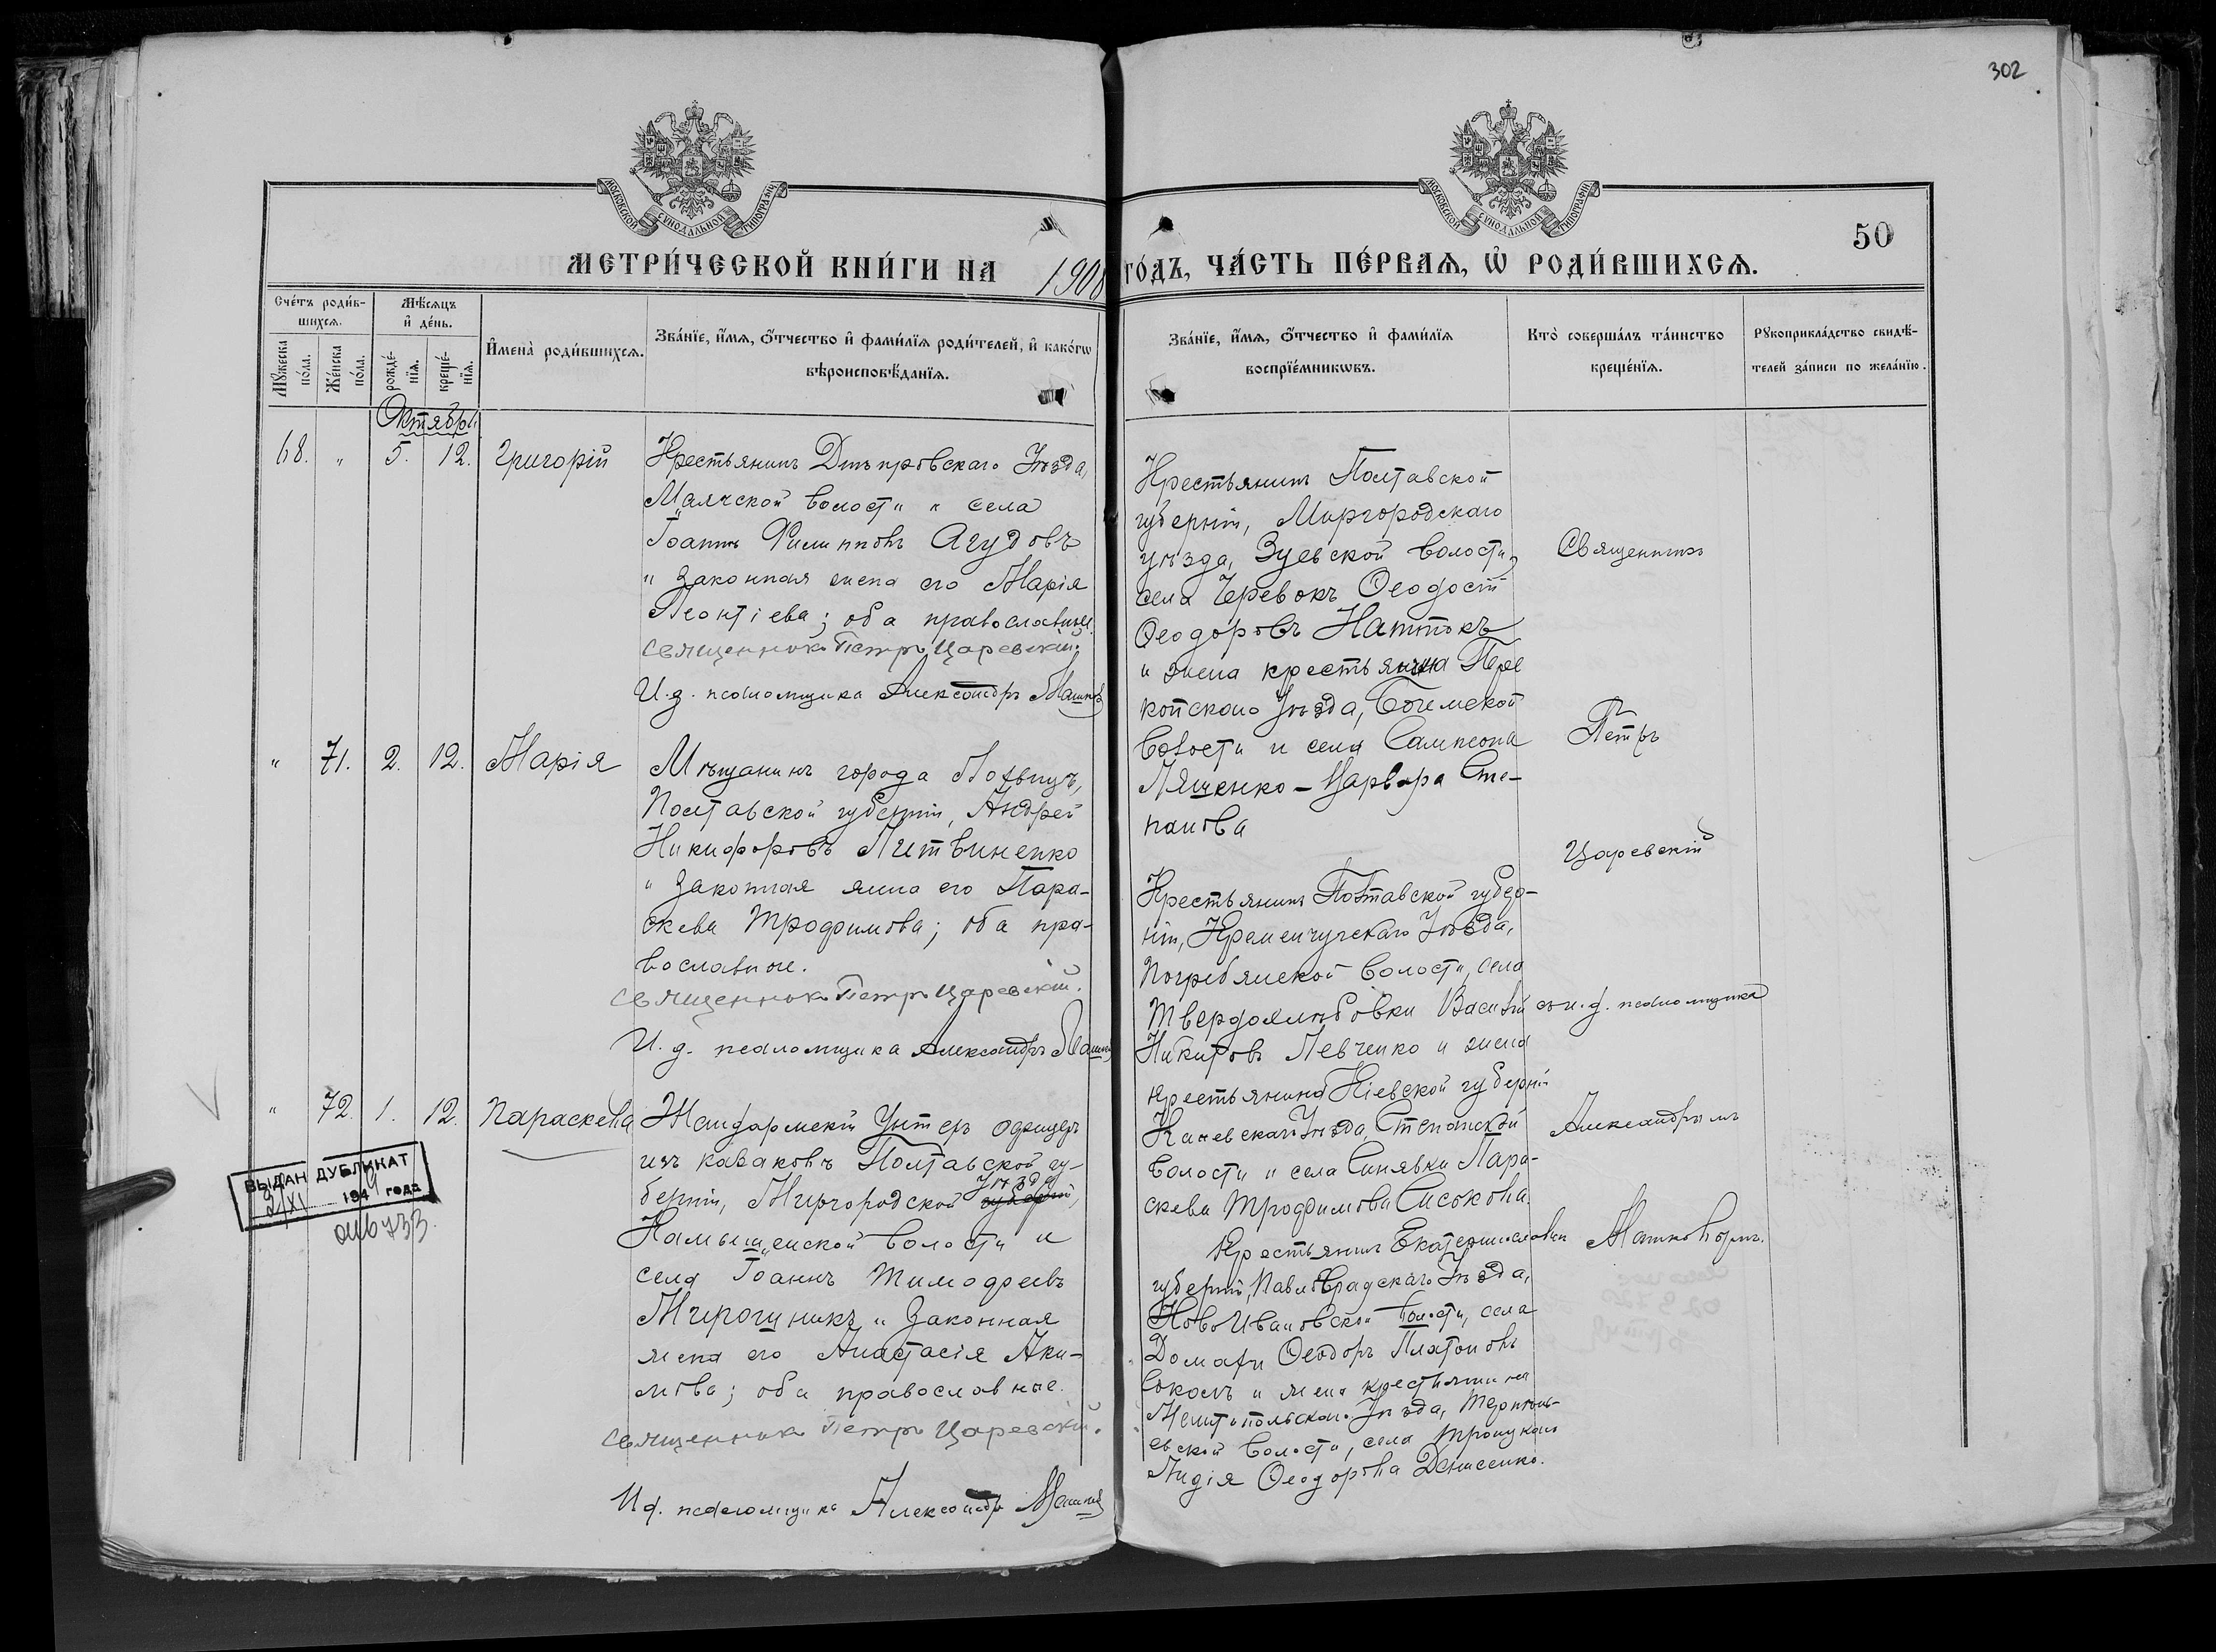 302
МОСКОВСКОЙ СѴНОДАЛЬНОЙ ТИПОГРАФІИ
МОСКОВСКОЙ СѴНОДАЛЬНОЙ ТИПОГРАФІИ
50
МЕТРИ́ЧЕСКОЙ КНИ́ГИ НА 1908 ГО́ДЪ, ЧА́СТЬ ПЕ́РВАѦ, Ѡ҆ РОДИ́ВШИХСѦ.
Сче́тъ роди́вшихсѧ.
Мꙋ́жеска по́ла.
Же́нска по́ла.
Мѣ́сѧцъ и҆ де́нь.
рожде́нїѧ.
креще́нїѧ.
И҆мена̀ роди́вшихсѧ.
Зва́нїе, и҆́мѧ, ѻ҆́тчество и҆ фами́лїѧ роди́телей, и҆ како́гѡ
вѣроисповѣ́данїѧ.
Зва́нїе, и҆́мѧ, ѻ҆́тчество и҆ фами́лїѧ
воспрїе́мникѡвъ.
Кто̀ соверша́лъ та́инство
креще́нїѧ.
Рꙋкоприкла́дство свидѣ́-
телей за́писи по жела́нїю.
Октябрь
68. " 5. 12. Григорій
Крестьянинъ Днѣпровскаго Уѣзда,
Маячской волости и села
Іоаннъ Филипповъ Агудовъ
и законная жена его Марія
Леонтіева; оба православные.
Священникъ Петръ Царевскій.
И. д. псаломщика Александръ Машковъ
Крестьянинъ Полтавской
губерніи, Миргородскаго
уѣзда, Зуевской волости,
села Черевокъ Ѳеодосій
Ѳеодоровъ
и жена крестьянина Пере
копскаго Уѣзда, Богемской
волости и села Сампсона
Лященко - Варвара Сте-
панова
" 71. 2. 12. Марія
Мѣщанинъ города Лохвицъ,
Полтавской губерніи, Андрей
Никифоровъ Литвиненко
и законная жена его Пара-
скева Трофимова; оба пра-
вославные.
Священникъ Петръ Царевскій.
И. д. псаломщика Александръ Машковъ
Крестьянинъ Полтавской губер-
ніи, Кременчугскаго Уѣзда,
Погребянской волости, села
Василій
Никитовъ Левченко и жена
крестьянина Кіевской губерніи
Каневскаго Уѣзда, Степанской
волости и села Синявки Пара-
скева Трофимова
" 72. 1. 12. Параскева
Жандармскій Унтеръ офицеръ
изъ казаковъ Полтавской гу-
берніи, Миргородской губерніи, Уѣзда
Камышенской волости и
села Іоаннъ Тимофеевъ
Мирогуникъ и законная
жена его Анастасія Аки-
мова; оба православные.
Священникъ Петръ Царевскій.
И д. псаломщика Александръ Машковъ
Крестьянинъ Екатеринослав
губерніи, Павлоградскаго Уѣзда,
Ново Ивановской волости, села
Ѳеодоръ Платоновъ
и жена крестьянина
Мелитопольскаго Уѣзда,
волости, села
Лидія Ѳеодорова Денисенко.
Священникъ
Петръ
Царевскій
съ и. д. псаломщика
Александромъ
Машковымъ.
ВЫДАН ДУБЛИКАТ
2/XI 1944 года